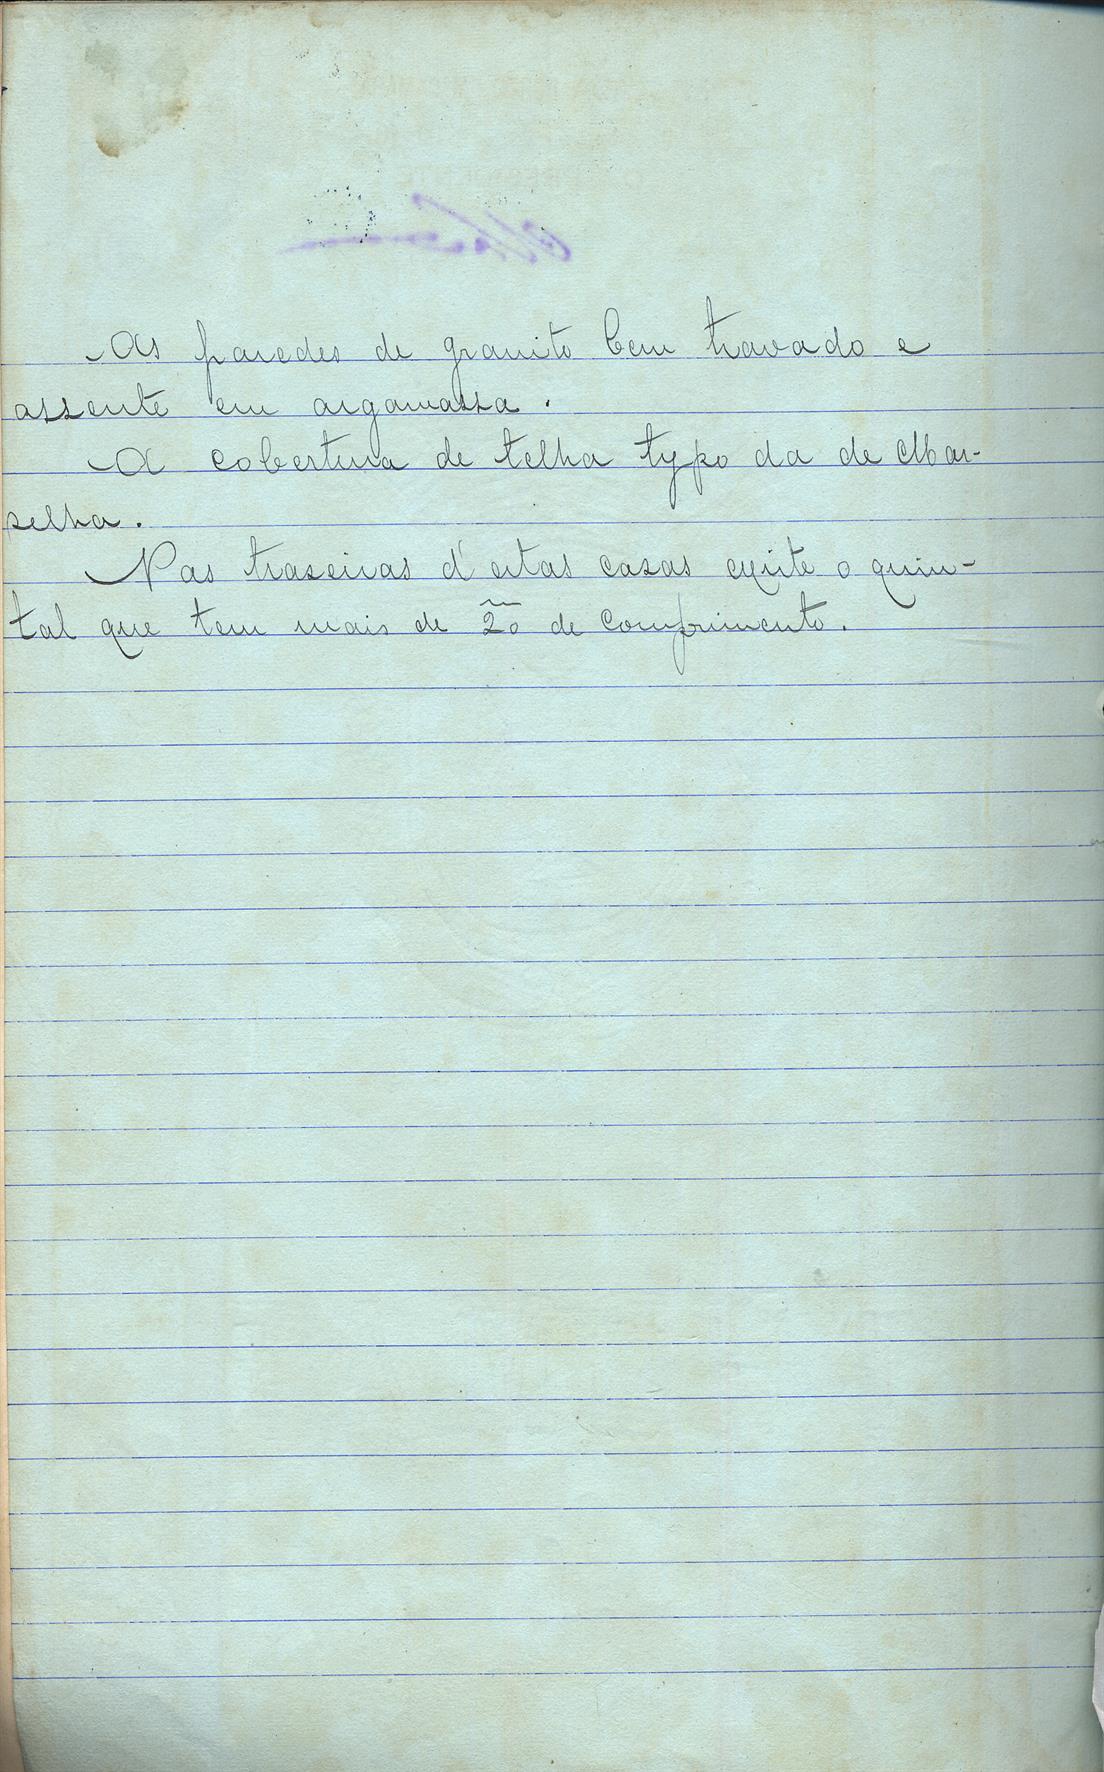 As paredes de granito bem travado e
assente em argamassa.
A cobertura de telha typo da de Mar-
selha.
Nas traseiras d'estas casas existe o quin-
tal que tem mais de 20m de comprimento.